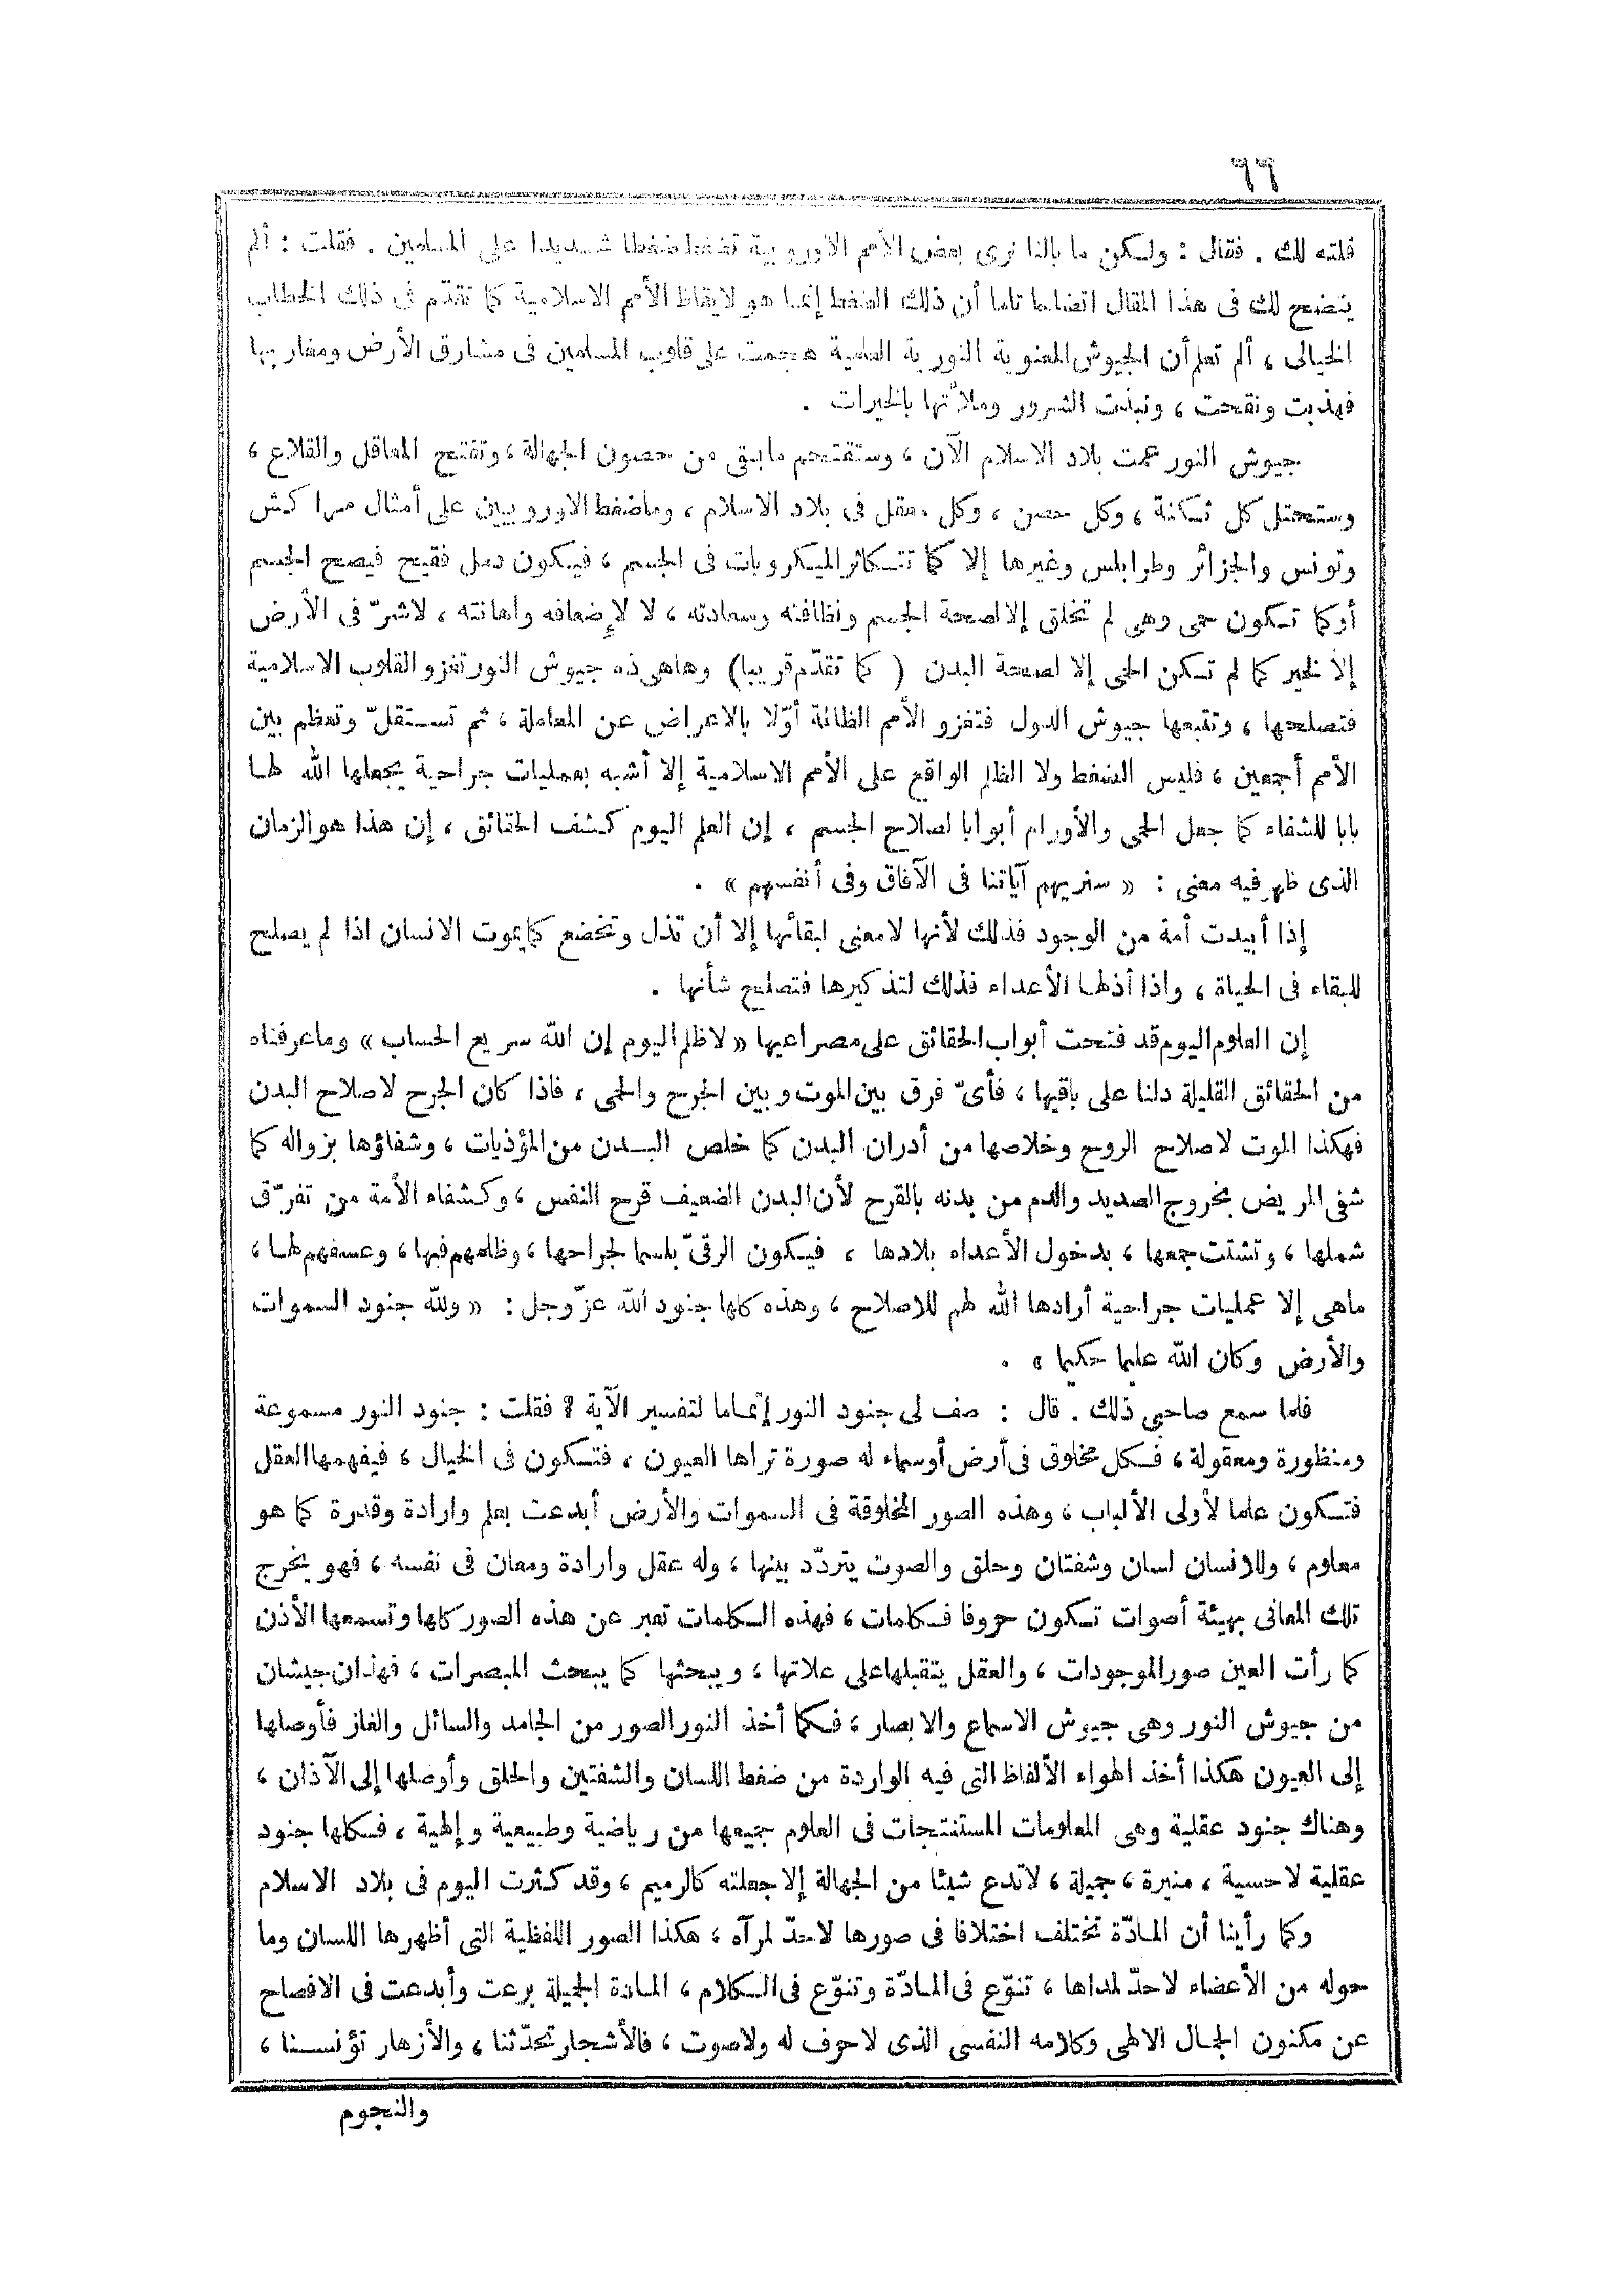 ٦٦
قلته لك . فقال : ولكن ما بالنا نرى بعض الأمم الأوروبية تضغط ضغطا شديدا على المسلمين . فقلت : ألم
يتضح لك فى هذا المقال اتضاحا تاما أن ذلك الضغط إنما هو لايقاظ الأمم الاسلامية كما تقدّم فى ذلك الخطاب
الخيالى ، ألم تعلم أن الجيوش المعنوية النورية العلمية هجمت على قلوب المسلمين فى مشارق الأرض ومغاربها
فهذبت ونقحت ، ونبذت الشرور وملأتها بالخيرات .
جيوش النور عمت بلاد الاسلام الآن ، وستقتحم مابقى من حصون الجهالة ، وتفتح المعاقل والقلاع ،
وستحتل كل ثكنة ، وكل حصن ، وكل معقل فى بلاد الاسلام ، وماضغط الاوروبيين على أمثال مراكش
وتونس والجزائر وطرابلس وغيرها إلا كما تتكاثر الميكروبات فى الجسم ، فيكون دمل فقيح فيصح الجسم
أوكما تكون حمى وهى لم تخلق إلا لصحة الجسم ونظافته وسعادته ، لا لإضعافه واهانته ، لاشرّ فى الأرض
إلا لخير كما لم تكن الحمى إلا لصحة البدن ( كما تقدّم قريبا) وهاهى ذه جيوش النور تغزو القلوب الاسلامية
فتصلحها ، وتتبعها جيوش الدول فتغزو الأمم الظالمة أوّلا بالاعراض عن المعاملة ، ثم تستقلّ وتعظم بين
الأمم أجمعين ، فليس الضغط ولا الظلم الواقع على الأمم الاسلامية إلا أشبه بعمليات جراحية يجعلها الله لها
بابا للشفاء كما جعل الحمى والأورام أبوابا لصلاح الجسم ، إن العلم اليوم كشف الحقائق ، إن هذا هو الزمان
الذى ظهر فيه معنى : « سنريهم آياتنا فى الآفاق وفى أنفسهم » .
إذا أبيدت أمة من الوجود فذلك لأنها لامعنى لبقائها إلا أن تذل وتخضع كما يموت الانسان اذا لم يصلح
للبقاء فى الحياة ، واذا أذلها الأعداء فذلك لتذكيرها فتصلح شأنها .
إن العلوم اليوم قد فتحت أبواب الحقائق على مصراعيها « لاظلم اليوم إن الله سريع الحساب » وماعرفناه
من الحقائق القليلة دلنا على باقيها ، فأىّ فرق بين الموت وبين الجرح والحمى ، فاذا كان الجرح لاصلاح البدن
فهكذا الموت لاصلاح الروح وخلاصها من أدران البدن كما خلص البدن من المؤذيات ، وشفاؤها بزواله كما
شفى المريض بخروج الصديد والدم من بدنه بالقرح لأن البدن الضعيف قرح النفس ، وكشفاء الأمة من تفرّق
شملها ، وتشتت جمعها ، بدخول الأعداء بلادها ، فيكون الرقىّ بلسما لجراحها ، وظلمهم فيها ، وعسفهم لها ،
ماهى إلا عمليات جراحية أرادها الله لهم للاصلاح ، وهذه كلها جنود الله عزّ وجل : « ولله جنود السموات
والأرض وكان الله عليما حكيما » .
فلما سمع صاحبى ذلك . قال : صف لى جنود النور إتماما لتفسير الآية ؟ فقلت : جنود النور مسموعة
ومنظورة ومعقولة ، فكل مخلوق فى أرض أوسماء له صورة تراها العيون ، فتكون فى الخيال ، فيفهمها العقل
فتكون علما لأولى الألباب ، وهذه الصور المخلوقة فى السموات والأرض أبدعت بعلم وارادة وقدرة كما هو
معلوم ، وللانسان لسان وشفتان وحلق والصوت يتردّد بينها ، وله عقل وارادة ومعان فى نفسه ، فهو يخرج
تلك المعانى بهيئة أصوات تكون حروفا فكلمات ، فهذه الكلمات تعبر عن هذه الصور كلها وتسمعها الأذن
كما رأت العين صور الموجودات ، والعقل يتقبلها على علاتها ، ويبحثها كما يبحث المبصرات ، فهذان جيشان
من جيوش النور وهى جيوش الاسماع والابصار ، فكما أخذ النور الصور من الجامد والسائل والغاز فأوصلها
إلى العيون هكذا أخذ الهواء الألفاظ التى فيه الواردة من ضغط اللسان والشفتين والحلق وأوصلها إلى الآذان ،
وهناك جنود عقلية وهى المعلومات المستنتجات فى العلوم جميعها من رياضية وطبيعية وإلهية ، فكلها جنود
عقلية لاحسية ، منيرة ، جميلة ، لاتدع شيئا من الجهالة إلا جعلته كالرميم ، وقد كثرت اليوم فى بلاد الاسلام
وكما رأينا أن المادّة تختلف اختلافا فى صورها لاحدّ لمرآه ، هكذا الصور اللفظية التى أظهرها اللسان وما
حوله من الأعضاء لاحدّ لمداها ، تنوّع فى المادّة وتنوّع فى الكلام ، المادة الجميلة برعت وأبدعت فى الافصاح
عن مكنون الجمال الالهى وكلامه النفسى الذى لاحرف له ولاصوت ، فالأشجار تحدّثنا ، والأزهار تؤنسنا ،
والنجوم